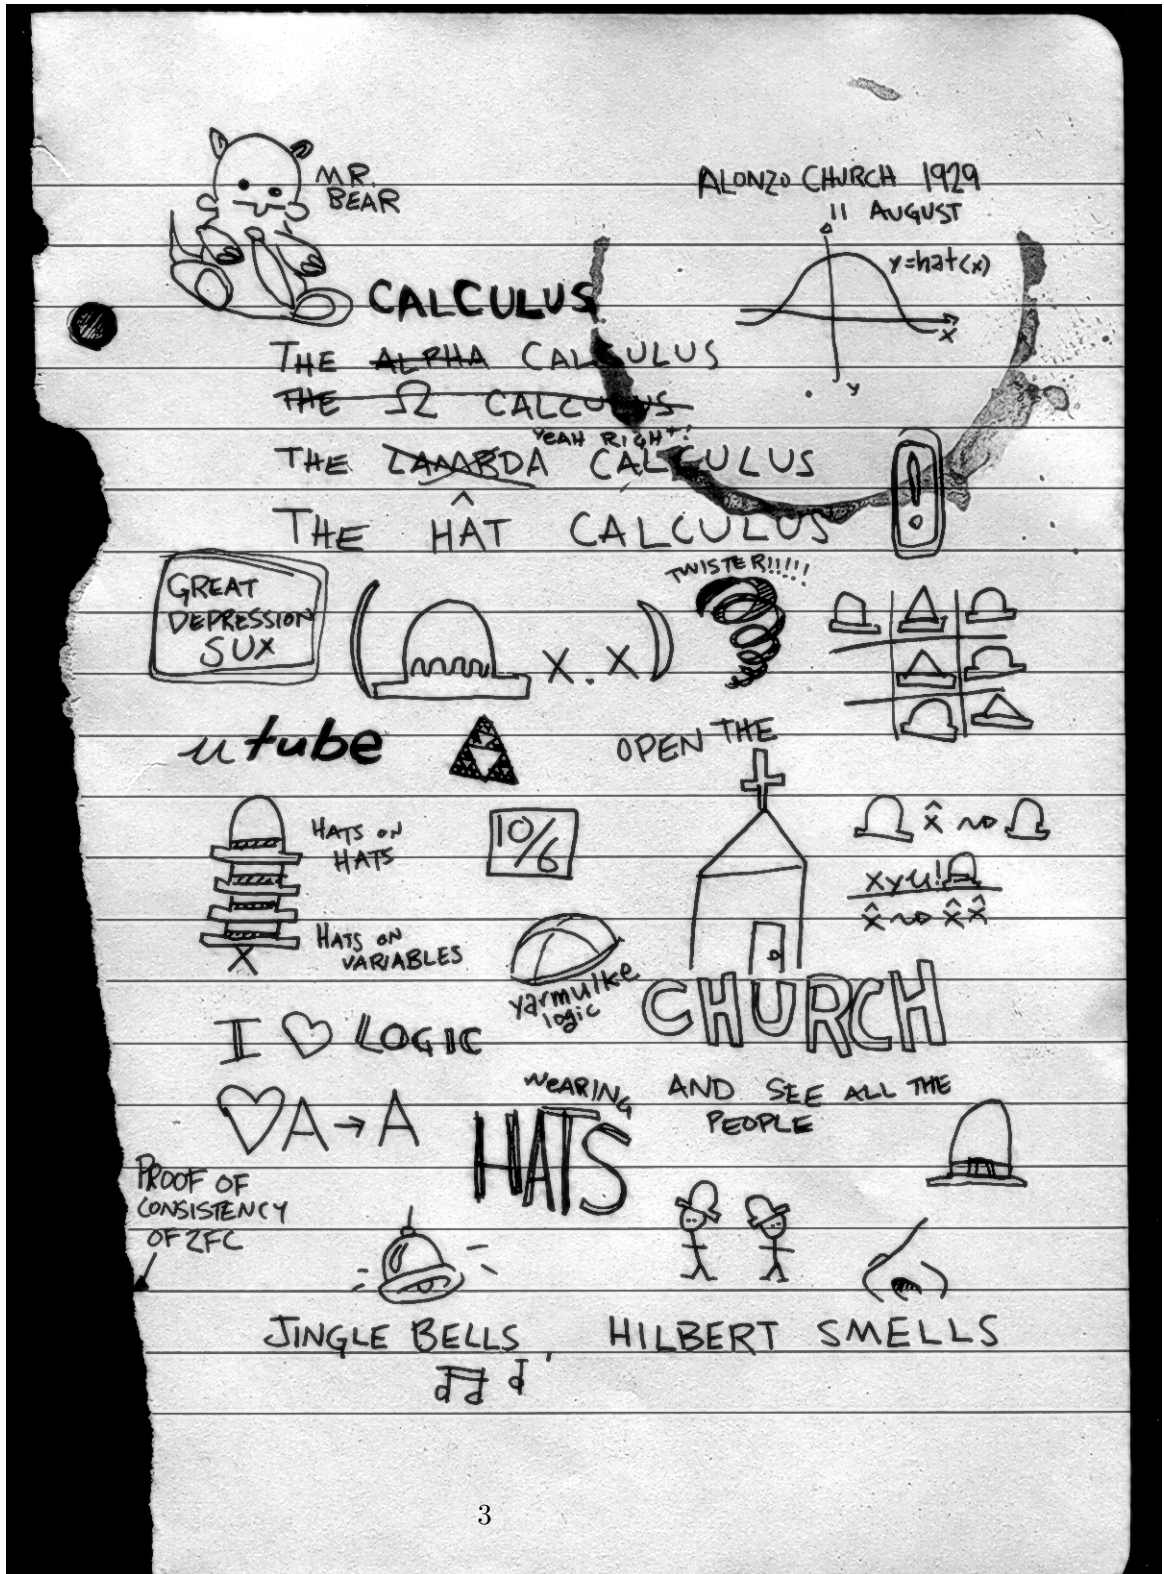 MR.
BEAR
ALONZO CHURCH 1929
11 AUGUST
y=hat(x)
x
y
CALCULUS
THE ALPHA CALCULUS
THE Ω CALCULUS
YEAH RIGHT!
THE LAMBDA CALCULUS
THE HÂT CALCULUS
!
GREAT
DEPRESSION
SUX
( x. x)
TWISTER!!!!!
utube
OPEN THE
HATS ON
HATS
10/6
x̂
xyu!
x̂ x̂ x̂
HATS ON
VARIABLES
X
yarmulke
logic
CHURCH
I ♡ LOGIC
♡A → A
WEARING
HATS
AND SEE ALL THE
PEOPLE
PROOF OF
CONSISTENCY
OF ZFC
JINGLE BELLS, HILBERT SMELLS
3